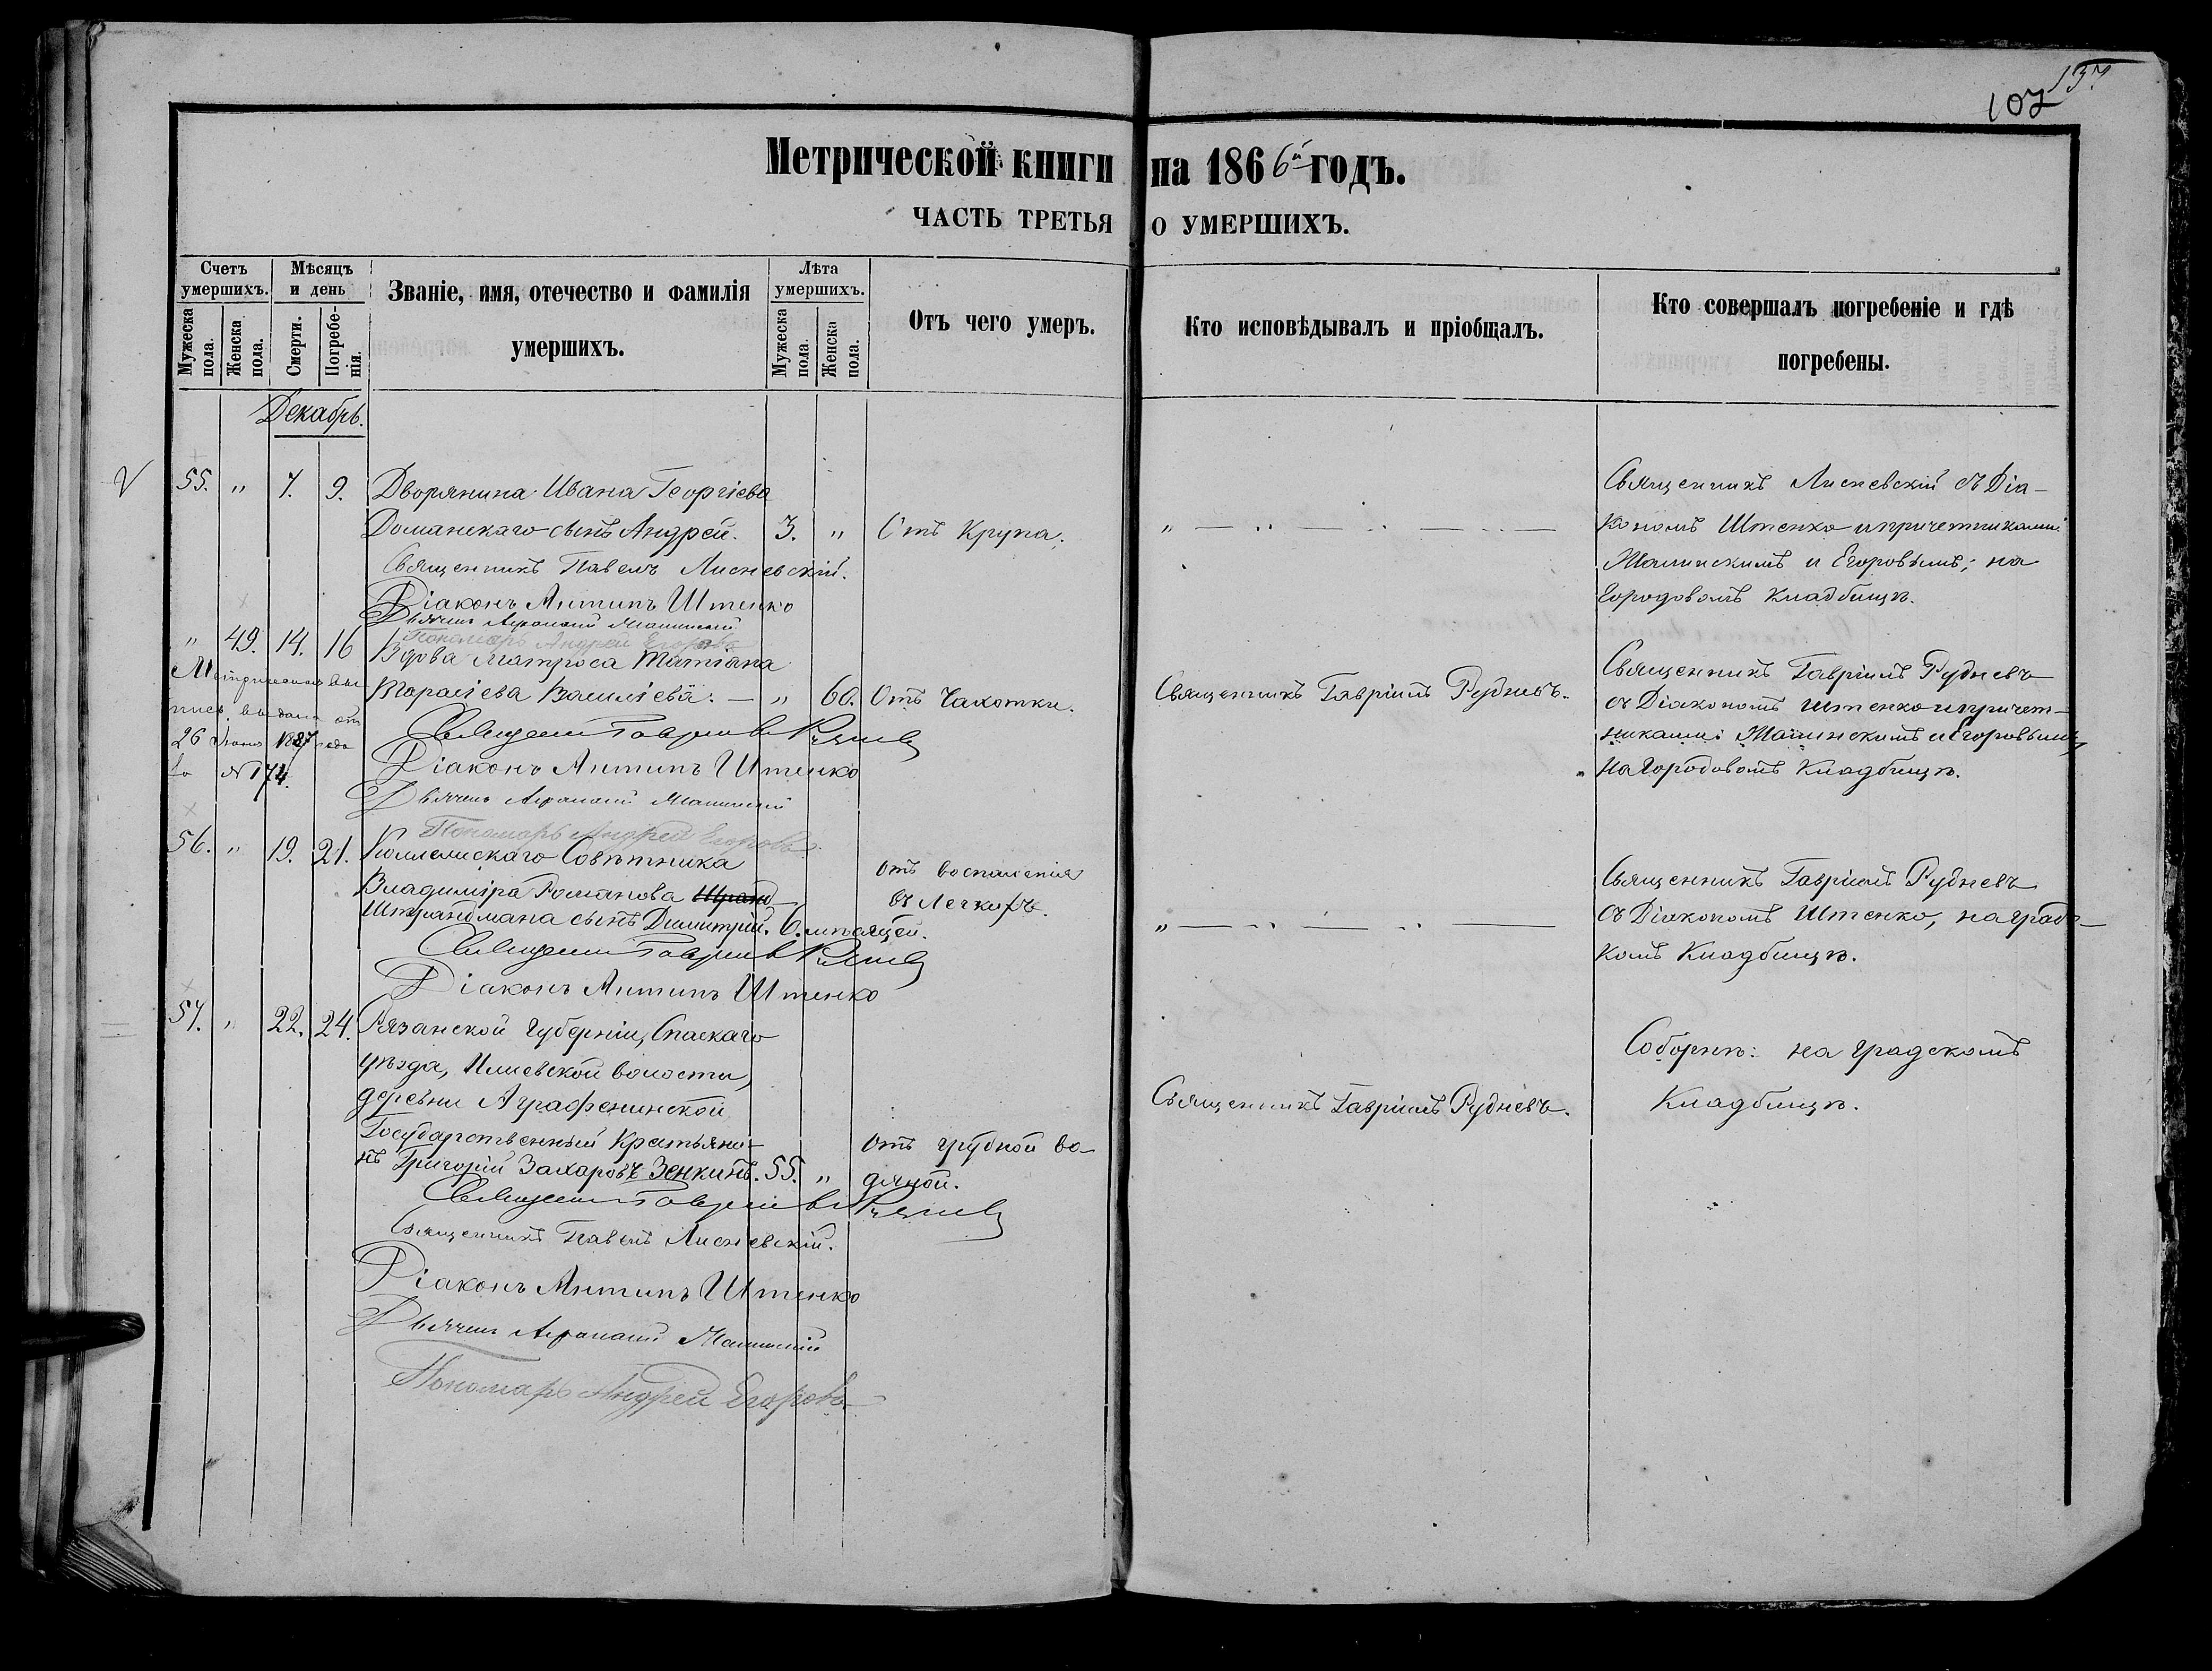 137.
107
Метрической книги на 1866й годъ.
ЧАСТЬ ТРЕТЬЯ О УМЕРШИХЪ.
Счетъ умершихъ.
Мѣсяцъ и день
Званіе, имя, отечество и фамилія умершихъ.
Лѣта умершихъ.
Отъ чего умеръ.
Кто исповѣдывалъ и пріобщалъ.
Кто совершалъ погребеніе и гдѣ погребены.
Мужеска пола.
Женска пола.
Смерти.
Погребенія.
Мужеска пола.
Женска пола.
Декабрь.
55. " 7. 9. Дворянина Ивана Георгіева
Доманскаго сынъ Андрей. 3. " Отъ Крупа.
Священникъ Павелъ Лисневскій.
Діаконъ Антипъ Штенко
Дьячекъ
Пономарь Андрей Егоровъ
Священникъ Лисневскій съ Діа-
кономъ Штенко и причетниками
и Егоровымъ; на
Городовомъ Кладбищѣ.
" 49. 14. 16 Вдова Матроса Татіана
Василіева. — " 60. Отъ Чахотки. Священникъ Гавріилъ Рудневъ.
Діаконъ Антипъ Штенко
Дьячекъ
Пономарь Андрей Егоровъ
Метрическая вы
пись выдана отъ
26 1887 года
за №174.
Священникъ Гавріилъ Рудневъ
съ Діакономъ Штенко и причет-
никами и Егоровымъ,
на Городовомъ Кладбищѣ.
56. " 19. 21. Коллежскаго Совѣтника
Владиміра Романова
Штрандмана сынъ Димитрій. 6. мѣсяцей.
отъ воспаленія
въ Легкихъ.
Діаконъ Антипъ Штенко
Священникъ Гавріилъ Рудневъ
съ Діакономъ Штенко, на град-
комъ Кладбищѣ.
57. " 22. 24. Рязанской Губерніи, Спаскаго
уѣзда, волости,
деревни Аграфенинской
Государственный Крестьяни-
нъ Григорій Захаровъ Зенкинъ. 55. "
отъ грудной во-
дяной.
Священникъ Гавріилъ Рудневъ.
Соборнѣ: на градскомъ
Кладбищѣ.
Священникъ Павелъ Лисневскій.
Діаконъ Антипъ Штенко
Дьячекъ
Пономарь Андрей Егоровъ